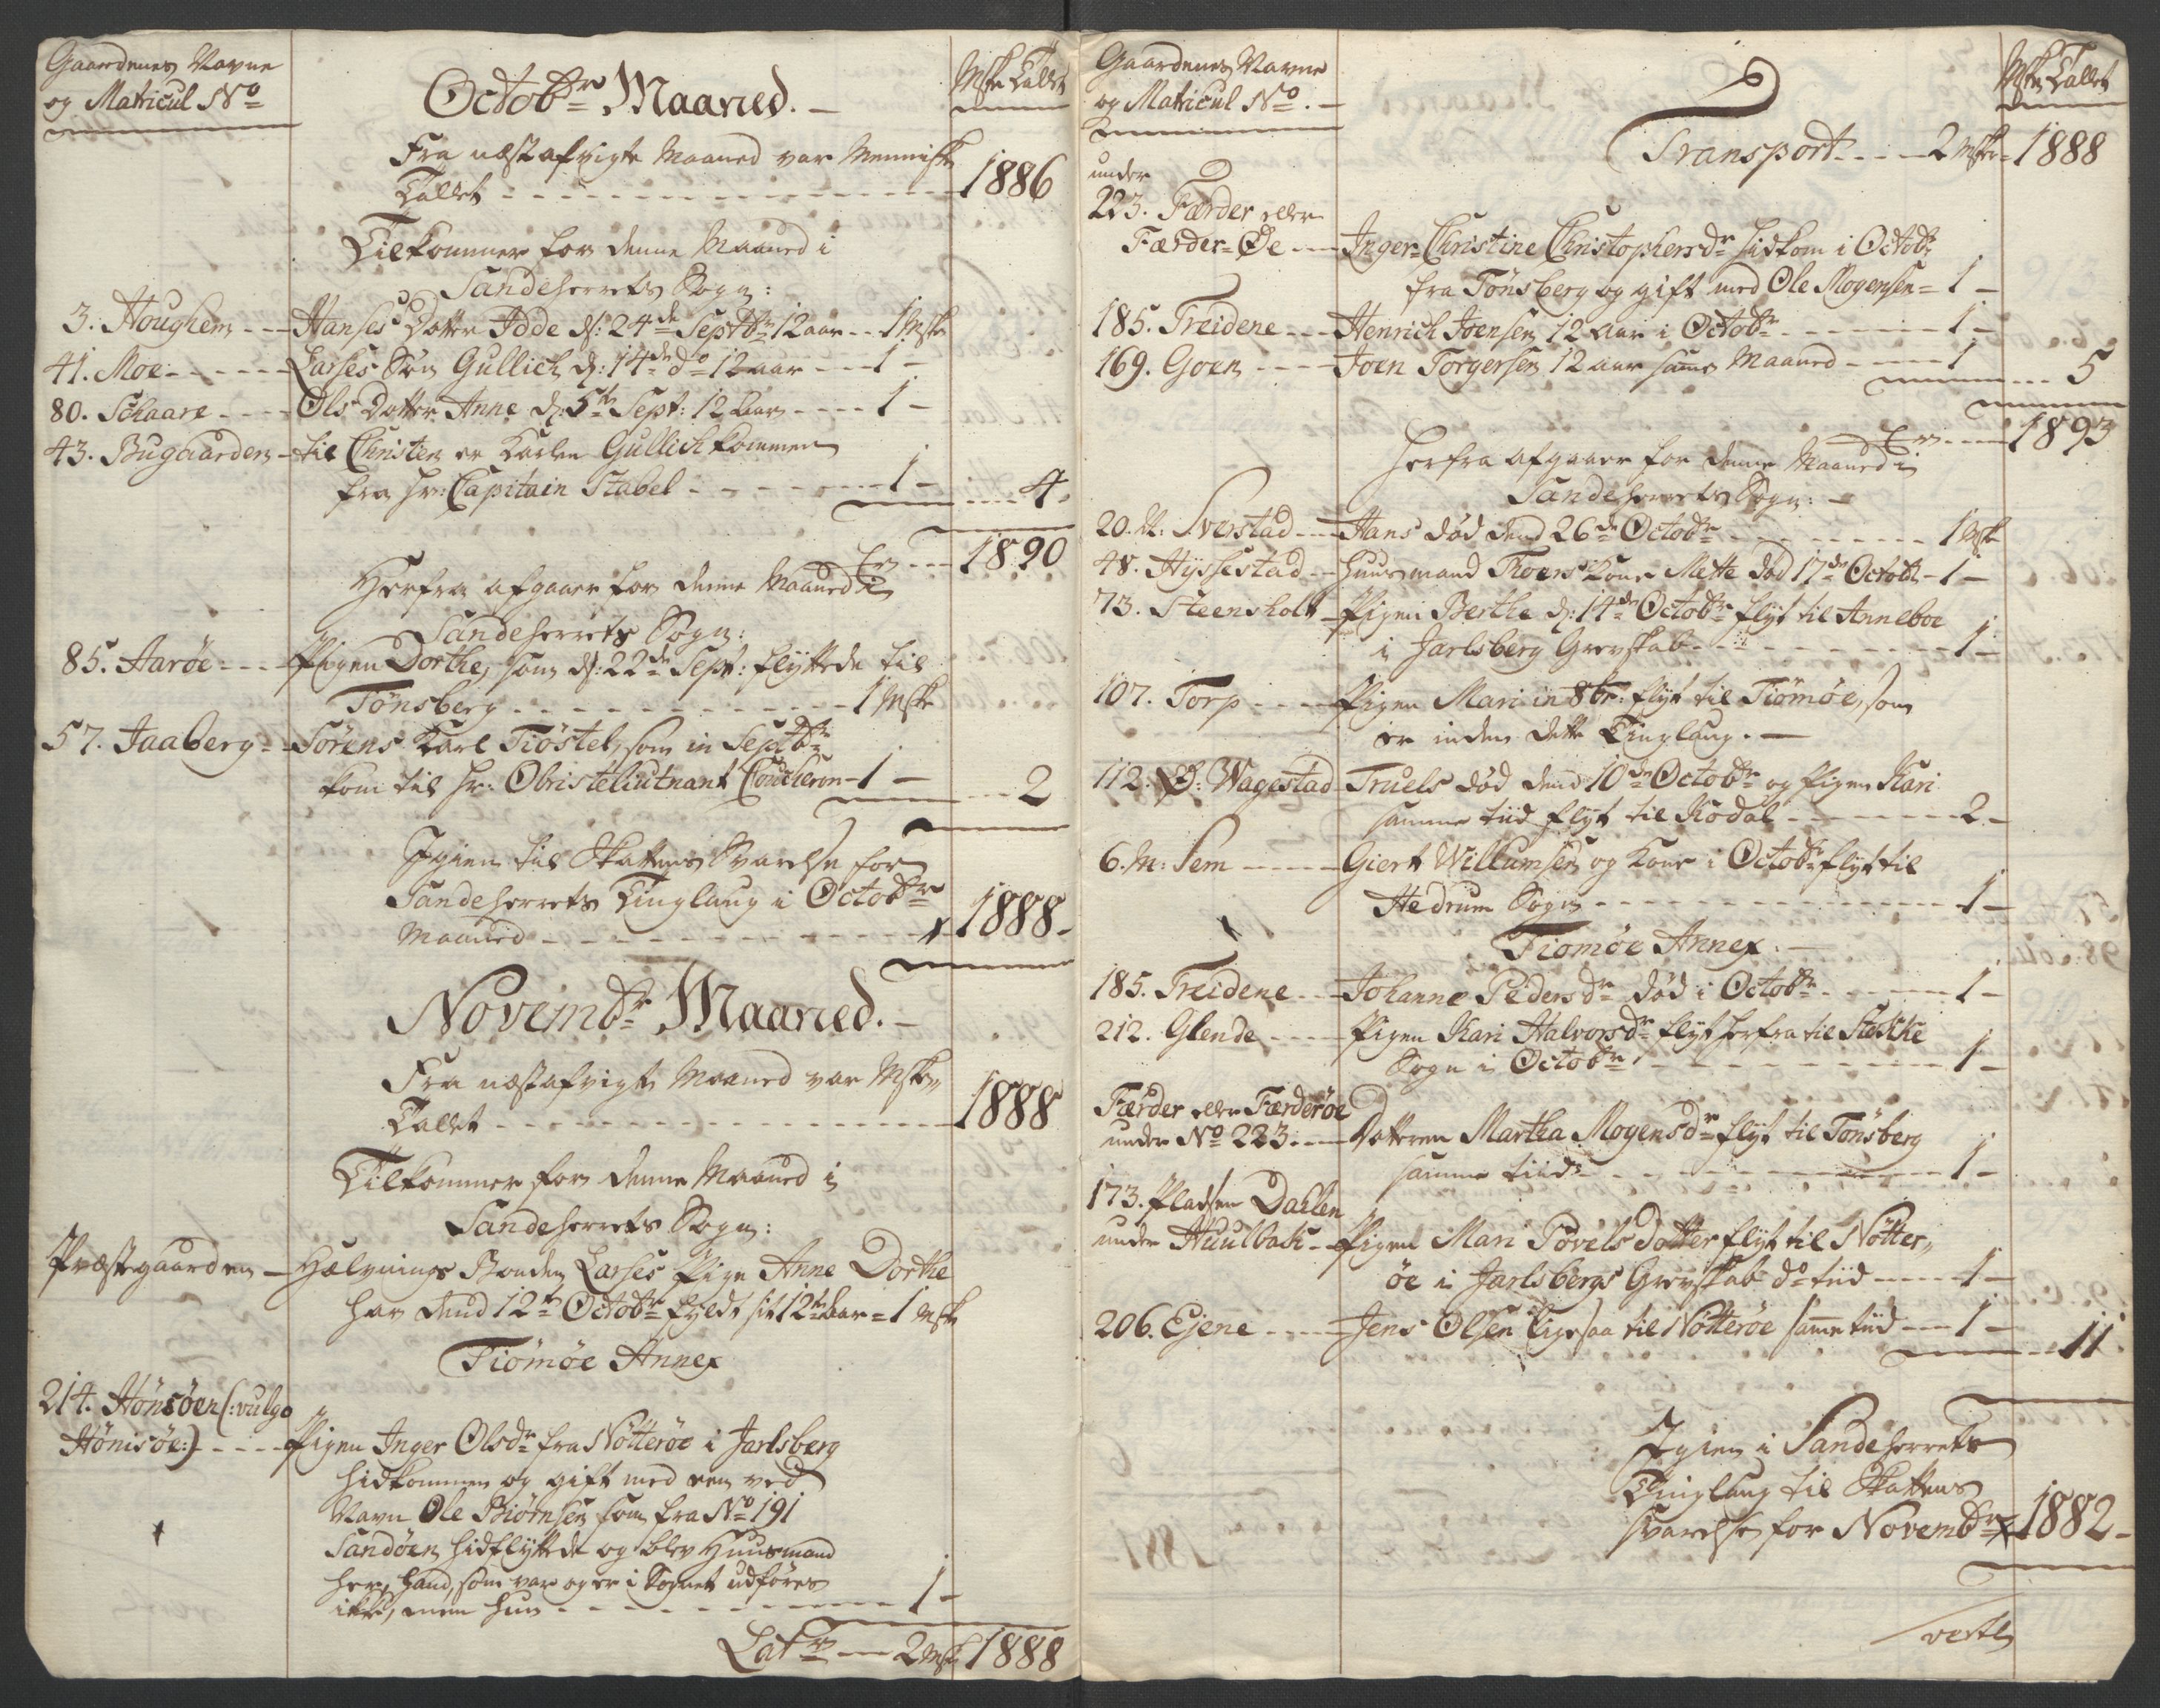 Gaardenes Navne
og Matricul No
Octobr Maaned.
Mske Tallet
Fra næstafvigte Maaned var Menniske
Tallet - - - 1886
Tilkommer for denne Maaned i
Sandeherrets Sogn:
3. Houghem - - Hanses Datter Idde d: 24de Septbr 12 aar - - 1 Mske
41. Moe - - - Larses Søn Gullich d: 14de do 12 aar - - - 1 -
80. Schaare - - - Ols Datter Anne d: 5te Sept: 12 Aar - - - 1 -
43. Bugaarden - til Christen er Karlen Gullich kommen
fra Hr: Capitain Stabel - - - 1 - - - - 4.
Er - - - 1890
Herfra afgaaer for denne Maaned i
Sandeherrets Sogn:
85. Aarøe - - - Pigen Dorthe, som d: 22de Sept: flyttede til
Tønsberg - - - 1 Mske
57. Jaaberg - - Sørens Karl Tiøstel, som in Septbr
kom til Hr: Obristeliutnant Coucheron - 1 - - - - 2
Igien til Skattens Svarelse for
Sandeherrets Tinglaug i Octobr
Maaned - - - 1888 -
Novembr Maaned. -
Fra næstafvigte Maaned var Mske,,
Tallet - - - 1888
Tilkommer for denne Maaned i
Sandeherrets Sogn:
Præstegaarden - Helgnings Bonden Larses Pige Anne Dorthe
har dend 12te Octobr fyldt sit 12te Aar = 1 Mske
Tiømøe Annex
214. Hønsøen (: vulgo
Hønisøe:) - - - Pigen Inger Olsdr fra Nøtterøe i Jarlsberg
hidkommen og gift med een ved
Navn Ole Biørnsen som fra No 191
Sandøen hidflyttede og blev Huusmand
her, hand, som var og er i Sognet udføres
ikke, men hun - - - 1 -
Latr - - 2 Mske 1888
Gaardenes Navne
og Matricul No. -
Mske Tallet
Transport - - - 2 Mske = 1888
under
223. Færder eller
Færder-Øe - - Inger Christine Christophersdr hidkom i Octobr
fra Tønsberg og gift med Ole Mogensen = 1 -
185. Treidene - - Henrich Joensen 12 Aar i Octobr - - - 1 -
169. Goen - - - Joen Torgersen 12 aar samme Maaned - - - 1 - - - 5
Er - - - 1893
Herfra afgaaer for denne Maaned i
Sandeherrets Sogn: -
20. N: Sverstad - - Hans død dend 26de Octobr - - - 1 Mske
48. Hyssestad - - Huusmand Thoers Kone Mette død 17de Octobr - 1 -
73. Steensholt - Pigen Berthe d: 14de Octobr flyt til Anneboe
i Jarlsberg Grevskab - - - 1 -
107. Torp - - - Pigen Mari in 8br: flyt til Tiømøe, som
er inden dette Tinglaug. -
112. Ø: Wagestad Truels død dend 10de Octobr og Pigen Kari
samme tiid flyt til Kodal - - - 2 -
6. M: Sem - - - Giert Willumsen og Kone i Octobr flyt til
Hedrum Sogn - - - 1 -
Tiømøe Annex. -
185. Treidene - - Johanne Pedersdr død i Octobr - - - 1 -
212. Glende - - - Pigen Kari Halvorsdr flyt herfra til Stokke
Sogn i Octobr - - - 1 -
Færder eller Færderøe
under No 223. - - Datteren Martha Mogensdr flyt til Tønsberg
samme tiid - - - 1 -
173. Pladsen Dahlen
under Huulbak - Pigen Mari Povels Datter flyt til Nøtter,,
øe i Jarlsbergs Grevskab do tiid - - - 1 -
206. Ejene - - - Jens Olsen ligesaa til Nøtterøe samme tiid - - 1 - - - 11.
Igien i Sandeherrets
Tinglaug til Skattens
svarelse for Novembr 1882 -
verte